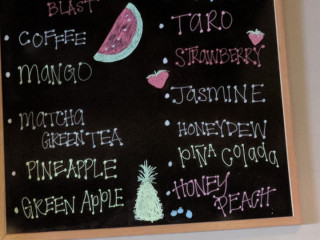 BLAST
COFFEE
MANGO
MATCHA
GREEN TEA
PINEAPPLE
GREEN APPLE
TARO
STRAWBERRY
JASMINE
HONEYDEW
PIÑA COLADA
HONEY
PEACH